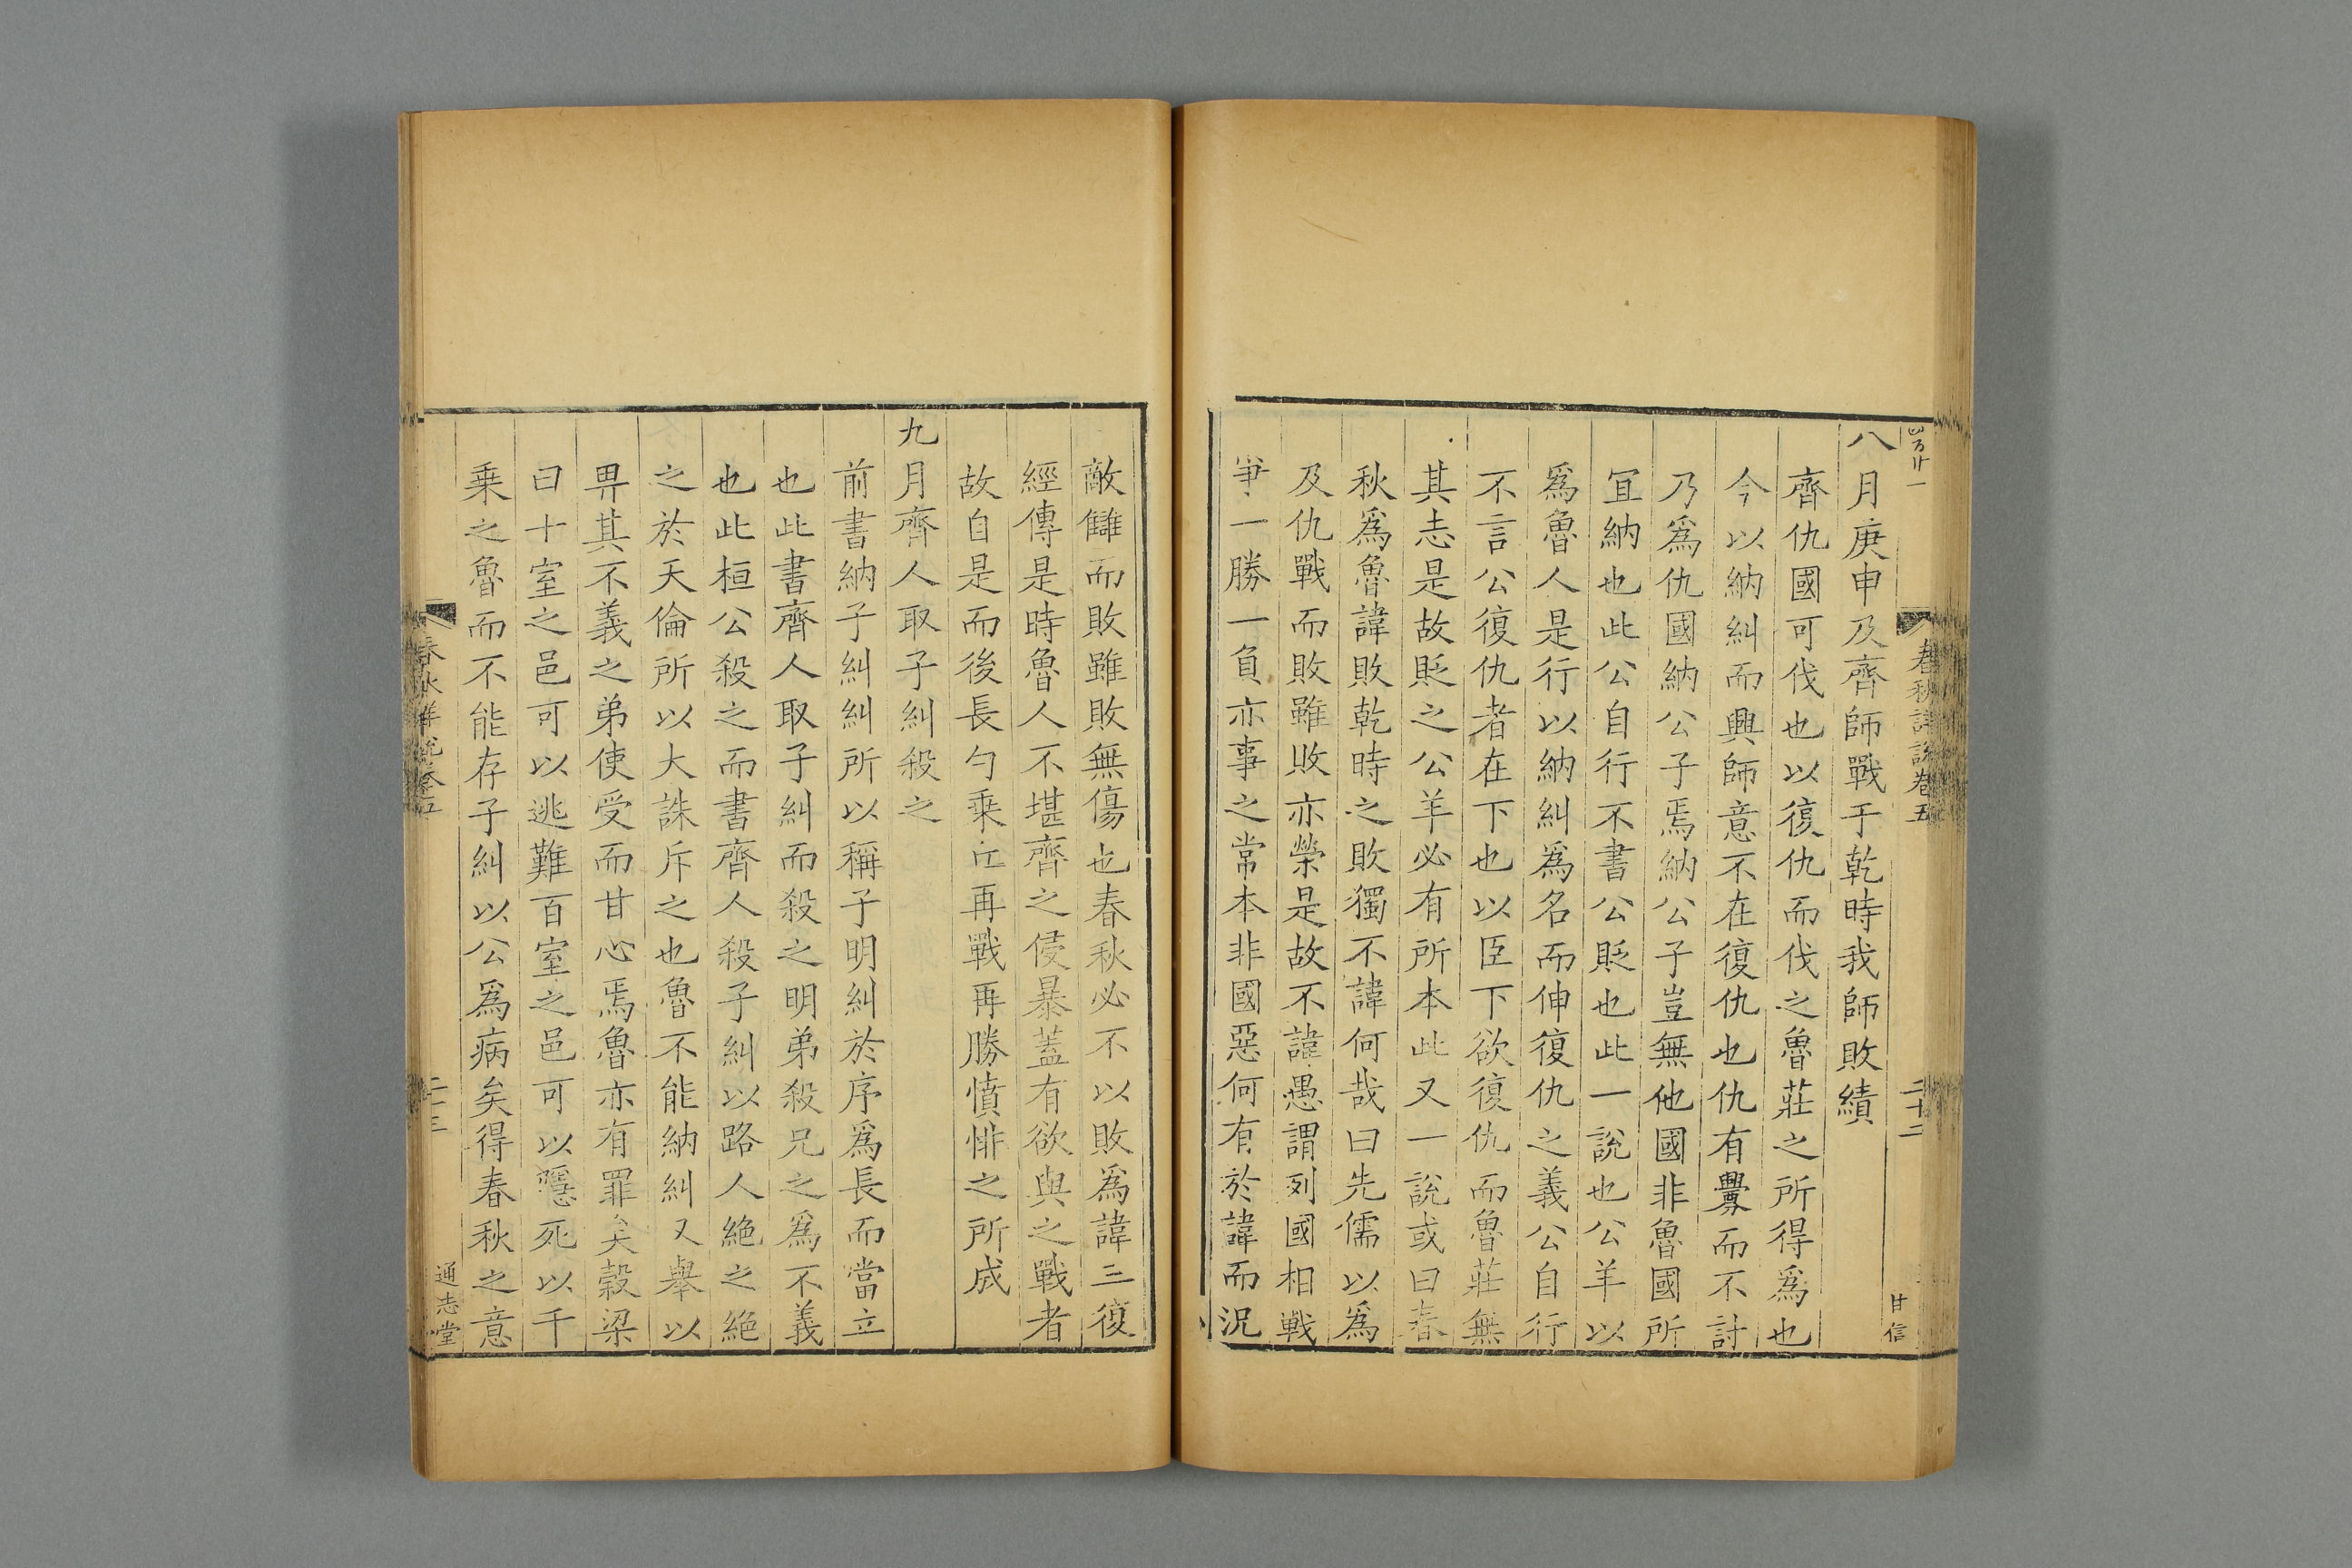 春秋詳說卷五
二十二
甘信
八月庚申及齊師戰于乾時我師敗績
齊仇國可伐也以復仇而伐之魯莊之所得爲也
今以納糾而興師意不在復仇也仇有釁而不討
乃爲仇國納公子焉納公子豈無他國非魯國所
冝納也此公自行不書公貶也此一說也公羊以
爲魯人是行以納糾爲名而伸復仇之義公自行
不言公復仇者在下也以臣下欲復仇而魯莊無
其志是故貶之公羊必有所本此又一說或曰春
秋爲魯諱敗乾時之敗獨不諱何哉曰先儒以爲
及仇戰而敗雖敗亦榮是故不諱愚謂列國相戰
爭一勝一負亦事之常本非國惡何有於諱而況
敵讎而敗雖敗無傷也春秋必不以敗爲諱三復
經傳是時魯人不堪齊之侵暴蓋有欲與之戰者
故自是而後長勺乗丘再戰再勝憤悱之所成
九月齊人取子糾殺之
前書納子糾糾所以稱子明糾於序爲長而當立
也此書齊人取子糾而殺之明弟殺兄之爲不義
也此桓公殺之而書齊人殺子糾以路人絕之絕
之於天倫所以大誅斥之也魯不能納糾又舉以
畀其不義之弟使受而甘心焉魯亦有罪矣穀梁
曰十室之邑可以逃難百室之邑可以隱死以千
乗之魯而不能存子糾以公爲病矣得春秋之意
春秋詳說卷五
二十二
通志堂